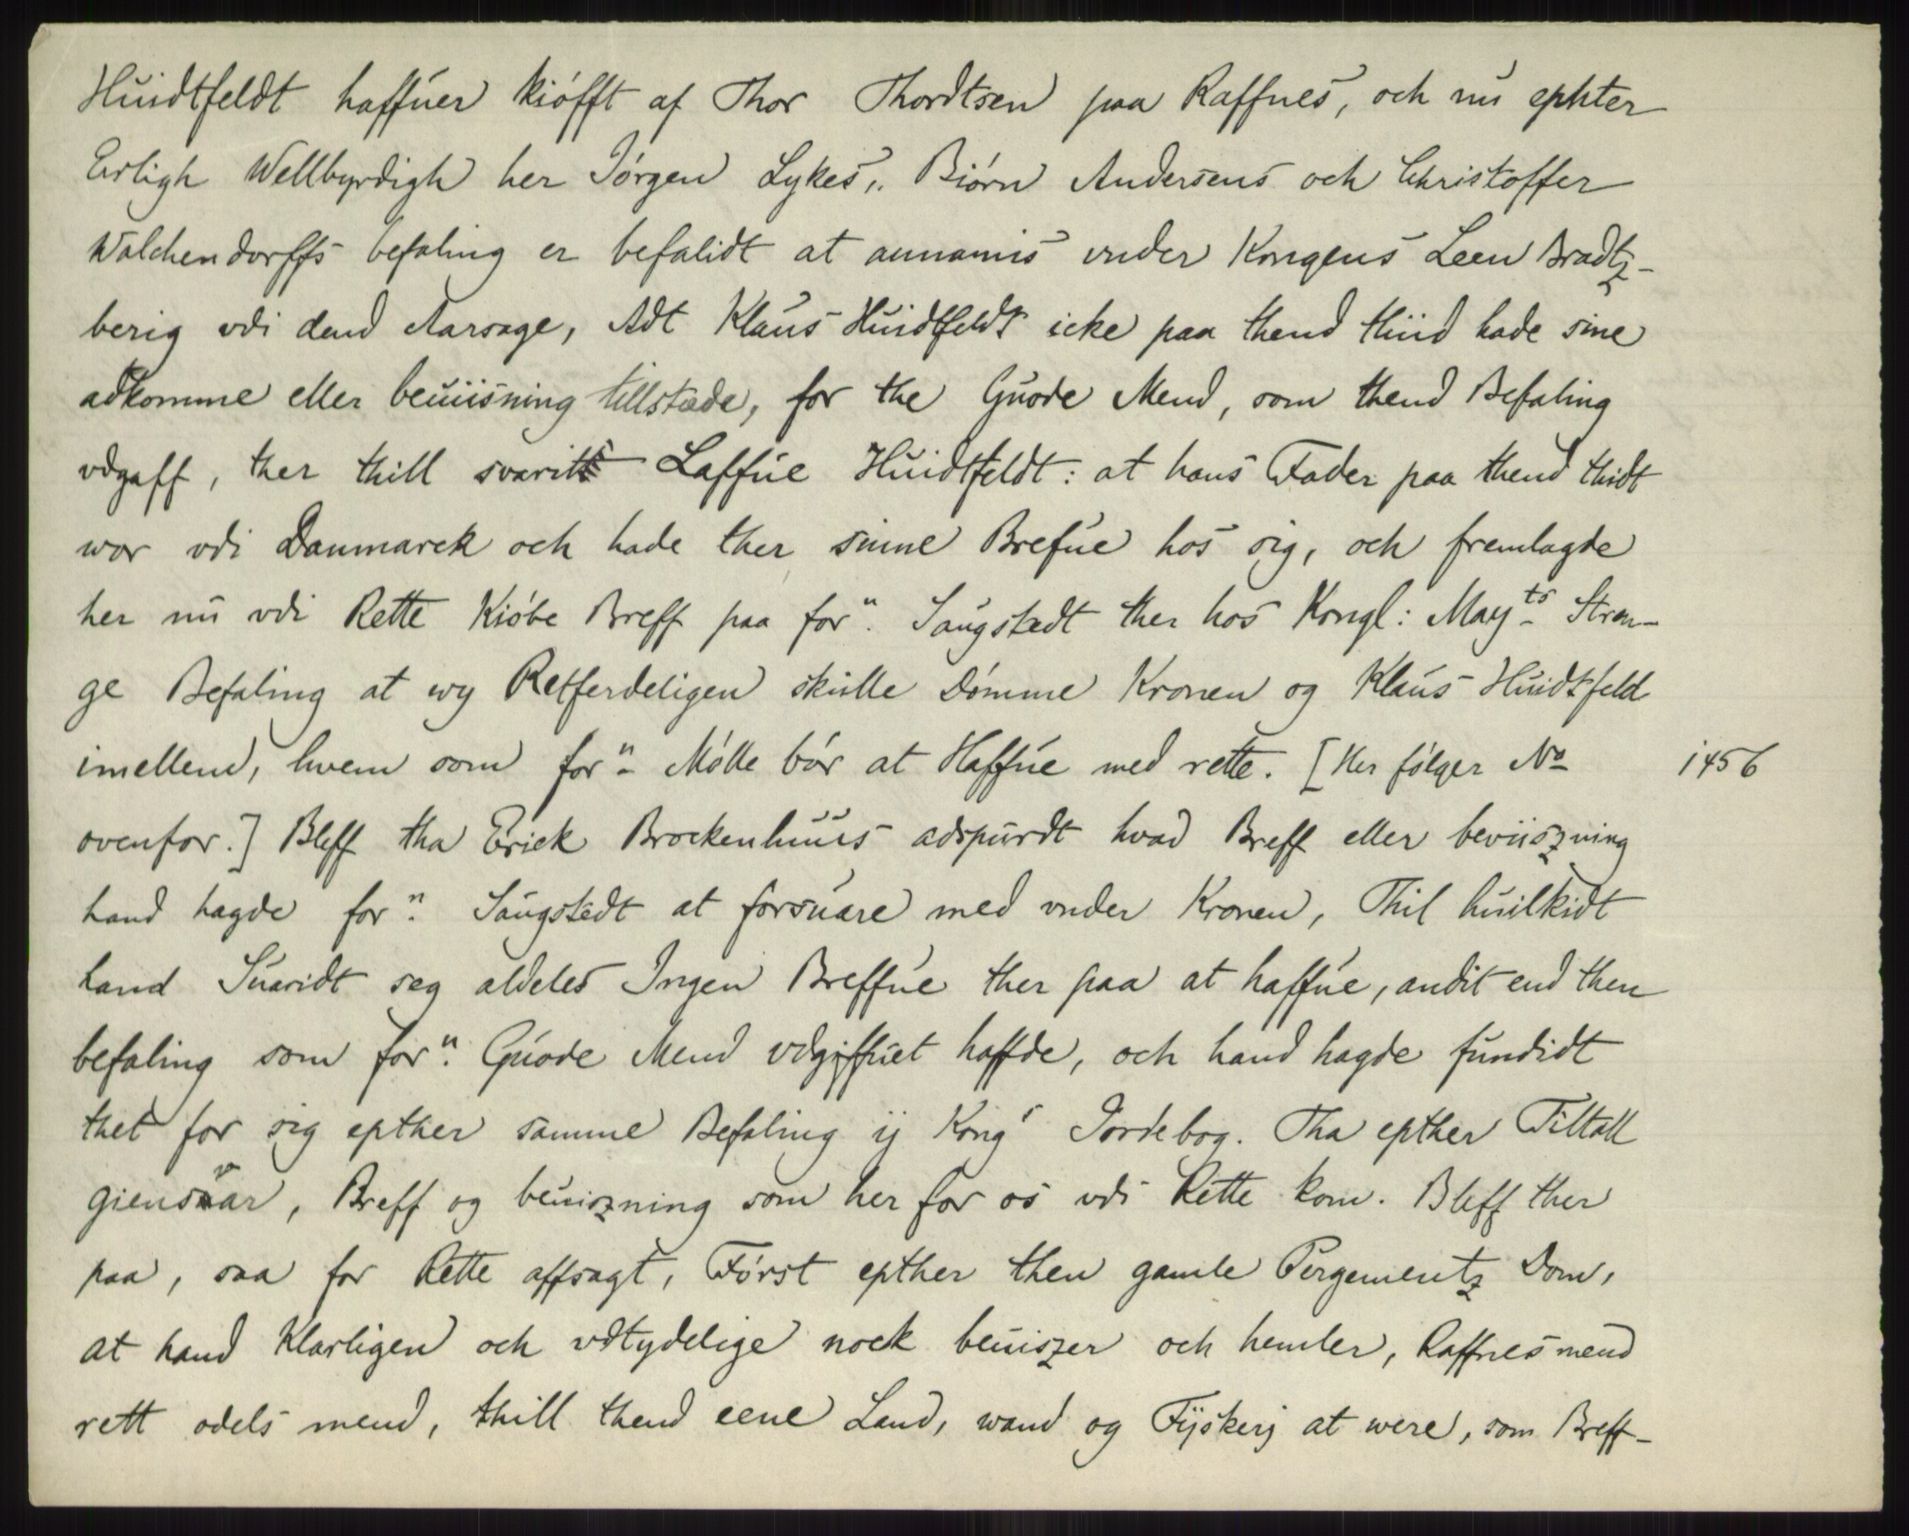 Huidtfeldt haffuer kiöfft af Thor Thordtsen paa Raffnes, och nu ephter
Erligh Wellbyrdigh her Jörgen Lykes, Biörn Andersens och Christoffer
Walchendorffs befaling er befalidt at annamis vnder Kongens Leen Bradtz-
berig vdi dend Aarsage, Adt Klaus Huidtfeldt icke paa thend thiid hade sine
adkomme eller beuiisning tillstæde, for the Guode Mend, som thend Befaling
vdgaff, ther thill svarit Laffue Huidtfeldt: at hans Fader paa thend thidt
wor vdi Danmarck och hade ther sinne Brefue hos sig, och fremlagde
her nu vdi Rette Kiöbe Breff paa forn. Saugstedt ther hos Kongl: Mayts Stren-
ge Befaling at wy Retferdeligen skulle Dömme Kronen og Klaus Huidtfeld
imellem, hvem som forn. Mölle bör at Haffue med rette. [Her fölger No 1456
ovenfor.] Bleff tha Erick Brockenhuus adspurdt hvad Breff eller beviiszning
hand hagde forn. Saugstedt at forsuare med vnder Kronen, Thil huilkidt
hand Suaridt seg aldeles Ingen Breffue ther paa at haffue, andit end then
befaling som forn. Guode Mend vdgiffuet haffde, och hand hagde fundidt
thet for sig epther samme Befaling ij Kongs Jordebog. Tha epther Tiltall
giensvar, Breff og beuiszning som her for os vdi Rette kom. Bleff ther
paa, saa for Rette affsagt, Först epther then gamle Pergementz Dom,
at hand Klarligen och vdtydelige nock beuiszer och hemler, Raffnesmend
rett odels mend, thill thend eene Land, wand og Fijskerj at were, som Breff-